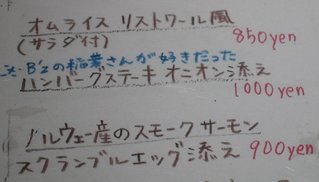 オムライス リストワール風
(サラダ付) 850yen
※B'zの稲葉さんが好きだった
ハンバーグステーキ オニオン添え
1000yen
ノルウェー産のスモークサーモン
スクランブルエッグ添え 900yen